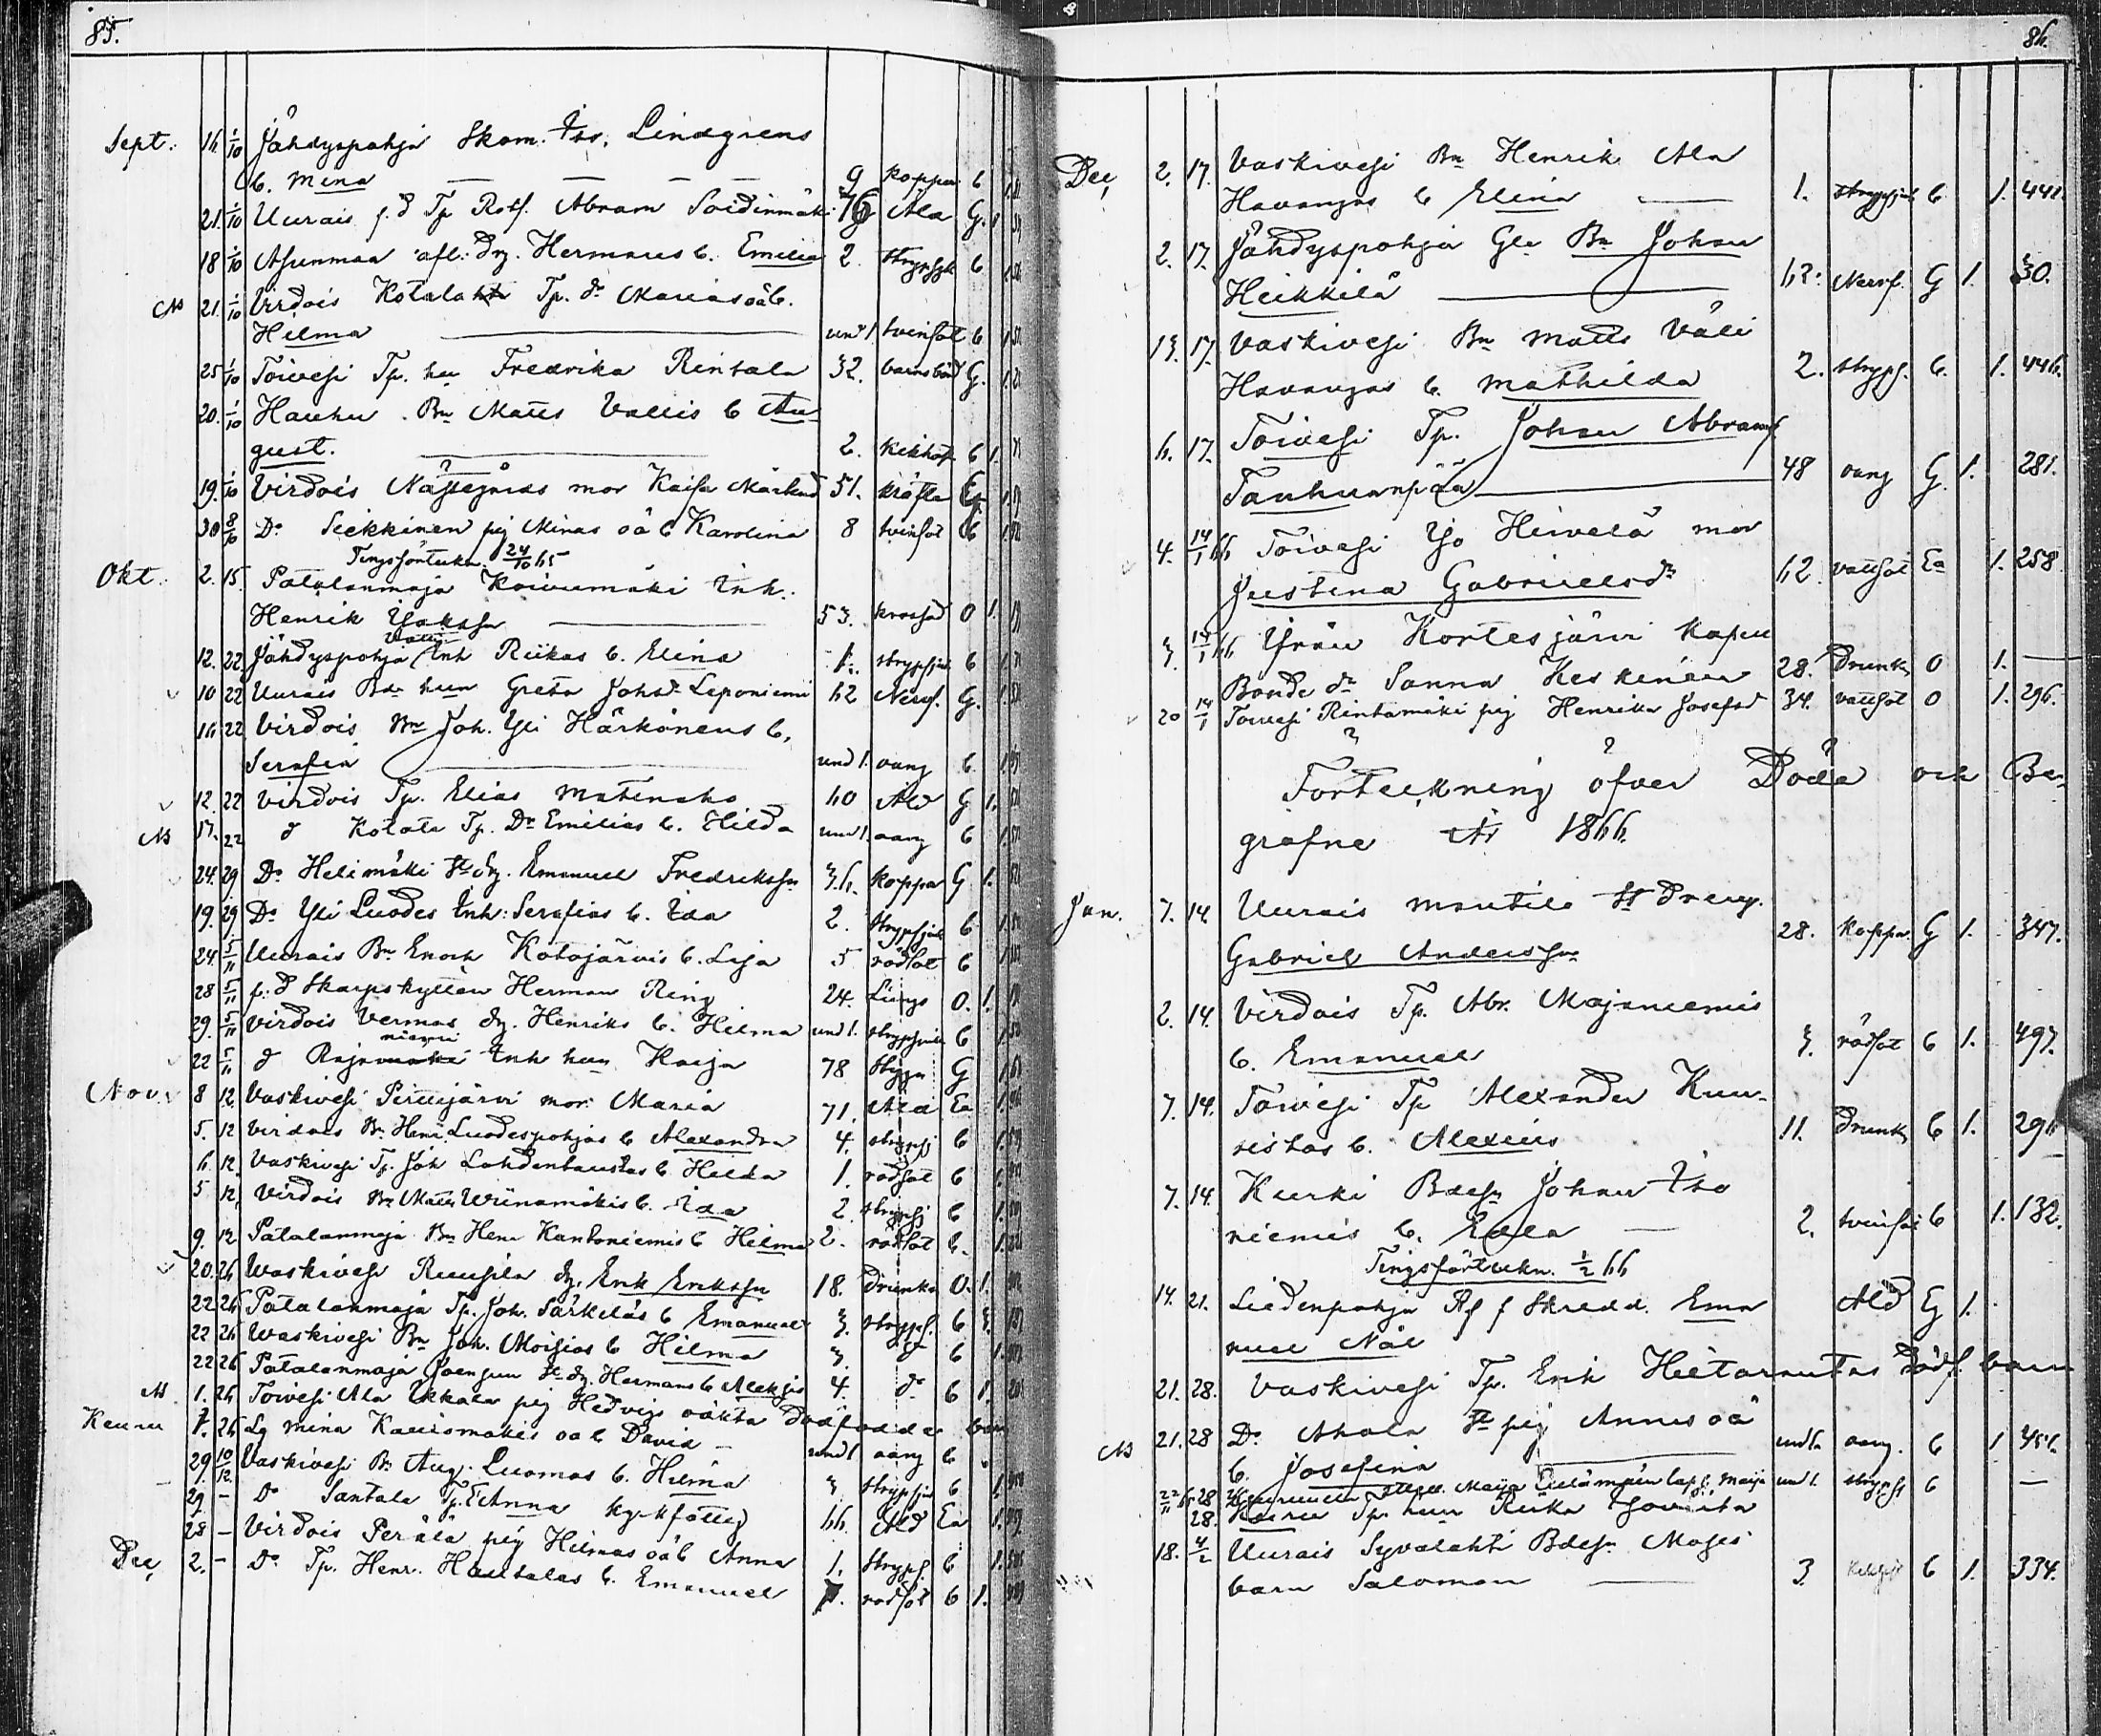 85.
Sept. 16. 1/10 Jähdyspohja Skom. Iss. Lindgrens
b. Mina — — — — 9 koppor b
21. 1/10 Uurais f. d Tp Rotf. Abram Soidinmäki 76 Åld G.
18 1/10 Asunmaa afl. Dr. Hermans b. Emilia 2. strypsjk b
21. 1/10 Virdois Kotala Tp. dr Marias oä b.
Helma und 1 tvinsot b
25 1/10 Toivesi Tp. hu Fredrika Rintala 32. barnsbörd G.
20. 1/10 Hauhu Bn Matts Vallis b Au-
gust. 2. kikhost b 1.
19. 1/10 Virdois mor Kaisa 51. kräfta Ea
30 8/10 Do Seikkinen pig Minas oä b Karolina 8 tvinsot b
Tingsförtekn. 24/10 65
Okt. 2. 15. Patalanmaja Koivumäki Inh.
Henrik Isaksson 53. krossad O 1.
12. 22. Jähdyspohja Inh Riikas b. Elina 1. strypsjuk b
10 22 Uurais Bde hun Greta Johsdr Leponiemi 62 Nervf. G.
16. 22 Virdois Bn Joh. Yli Härkönens b,
Serafia und 1. oang b.
12. 22 Virdois Tp. Elias Matinaho 60 Åld G 1.
17. 22 d Kotala Tp. Dr Emilias b. Hilda und 1. oang b
24. 29 Do Helimäki St dg. Emanuel Fredriksson 36. koppor G 1.
19. 29 Do Yli Luodes Inh. Serafias b. Ida 2. strypsjuk b.
24. 5/11 Uurais Bn Enoch Kotojärvis b. Lisa 5 rödsot b
28 5/11 f. d Skarpskytten Herman Ring 24. Lungs O. 1.
29. 5/11 Virdois Vermas dg. Henriks b. Hilma und 1. strypsjuk b
niemi
22 5/11 d Raja Inh hun Kaisa 78 Stygn G
Nov. 8 12. Vaskivesi Perujärvi mor Maria 71. Åld Ea
5. 12 Virdois Bn Henr. Luodespohjas b Alexandra 4. strypsj b
6. 12. Vaskivesi Tp. Joh Lahdentaustas b Hilda 1. rödsot b
5 12, Virdois Bn Matts Wiinamäkis b. Ida 2. strypsj b
9. 12 Patalanmaja Bn Henr Kantoniemis b Hilma 2. rödsot b.
20. 26 Waskivesi Ruusila dg. Erik Eriksson 18. Drunkn O. 1.
22. 26 Patalanmaja Tp. Joh. Särkeläs b Emanuel 3. strypsj. b
22 26 Waskivesi Bn Joh. Moisios b Hilma 3. d b
22 26 Patalanmaja Joensuu St dg. Hermans b Aleksis 4. do b
1. 26 Toivesi Ala Ikkala pig Hedvigs oäkta Dödfödda barn
Keuru 7. 26 Lg Mina Kauismäkis oä b David — und 1 oang b
29. 10/12 Vaskivesi Bn Aug. Luomas b. Hilma 3 strypsjuk b
29. — Do Santala Tp. E Anna kyrkfattig 66. Åld Ea
28 — Virdois Perälä pig Hilmas oä b Anna 1. strypsj. b
Dec, 2. — Do Tp. Henr. Hautalas b. Emanuel 7. rödsot b 1.
86.
Dec, 2. 17. Vaskivesi Bn Henrik Ala
Havangas b Elina 1. strypsjuk b 1. 441.
2. 17. Jähdyspohja Gla Bn Johan
Heikkilä 62. Nervf. G 1. 30.
13. 17. Vaskivesi Bn Matts Väli
Havangas b. Mathilda 2. strypsj. b. 1. 446.
6. 17. Toivesi Tp. Johan Abramsf.
Tanhuanpää 48 oang G. 1. 281.
4. 14/1 66 Toivesi Iso Heivelä mor
Justina Gabrielsdr 62. vattsot Ea 1. 258.
3. 14/1 66 Ifrån Kortesjärvi kapell
Bonde dr Sanna Keskinen 28. Drunkn O 1. —
20 14/1 Toivesi Rintamäki pig Henrika Josefsd 34. vattsot O 1. 296.
Förteckning öfver Döda och Be-
grafne År 1866.
Jan. 7. 14. Uurais Mantila St Dreng.
Gabriel Andersson 28. koppor. G 1. 347.
2. 14. Virdois Tp. Abr. Majaniemis
b. Emanuel 3. rödsot b 1. 497.
7. 14. Toivesi Tp Alexander Kuu-
sistos b. Alexius 11. Drunkn b 1. 296
7. 14. Kurki Bdesn Johan Iso
niemis b. Edla — 2. tvinsot b 1. 132.
Tingsförtekn. 1/2 66
14. 21. Liedenpohja Rf f Skredd. Ema
nuel Nål Åld G 1.
21. 28. Vaskivesi Tp. Erik Hietarantas Dödf. barn
21. 28 Do Ahola St pig Annas oä
b. Josefina und 1. oang. b 1 456.
28 Maija lapsi Maija und 1. strypsj b —
28. Keuru Tp. hun Riika
18. 4/2 Uurais Syvälahti Bdesn Moses
barn Salomon 3. Kikhost b 1. 334.